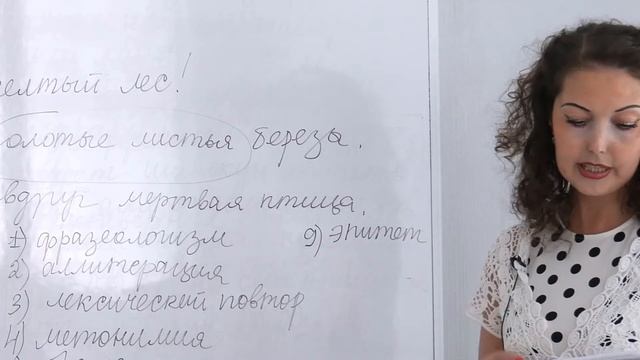 желтый лес!
золотые листья береза.
вдруг мертвая птица.
1) фразеологизм 9) эпитет
2) аллитерация
3) лексический повтор
4) метонимия